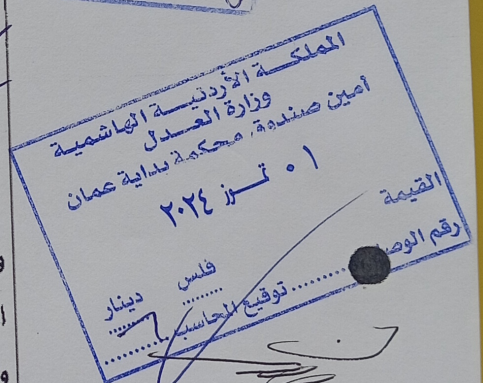 المملكة الأردنية الهاشمية
وزارة العدل
أمين صندوق محكمة بداية عمان
٠١ تموز ٢٠٢٤
القيمة
فلس دينار
رقم الوصل
توقيع المحاسب